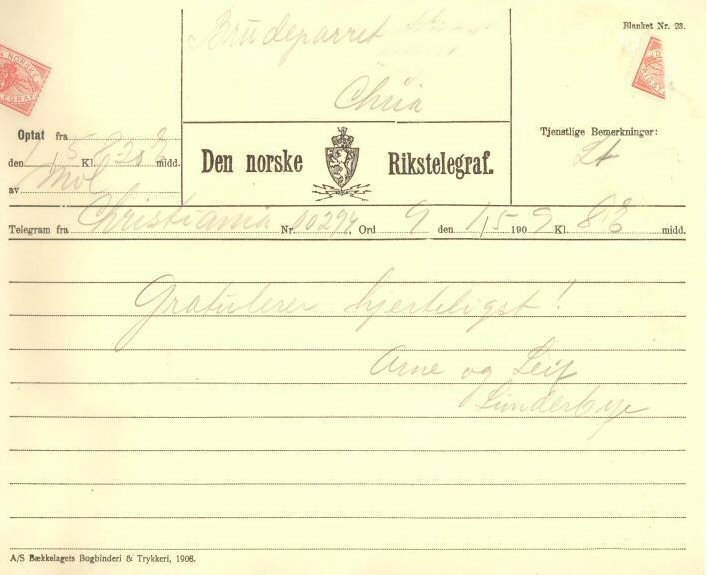 Brudeparret
Chria
Blanket Nr. 23.
Optat fra
den 1/5 Kl. 8 20 E midd.
av
Den norske Rikstelegraf.
Tjenstlige Bemerkninger:
Lt
Telegram fra Christiania Nr. 00294, Ord 9 den 1/5 1909 Kl. 8 8 E midd.
Gratulerer hjerteligst!
Arne og Leif
Lunderbye
A/S Bækkelagets Bogbinderi & Trykkeri, 1908.